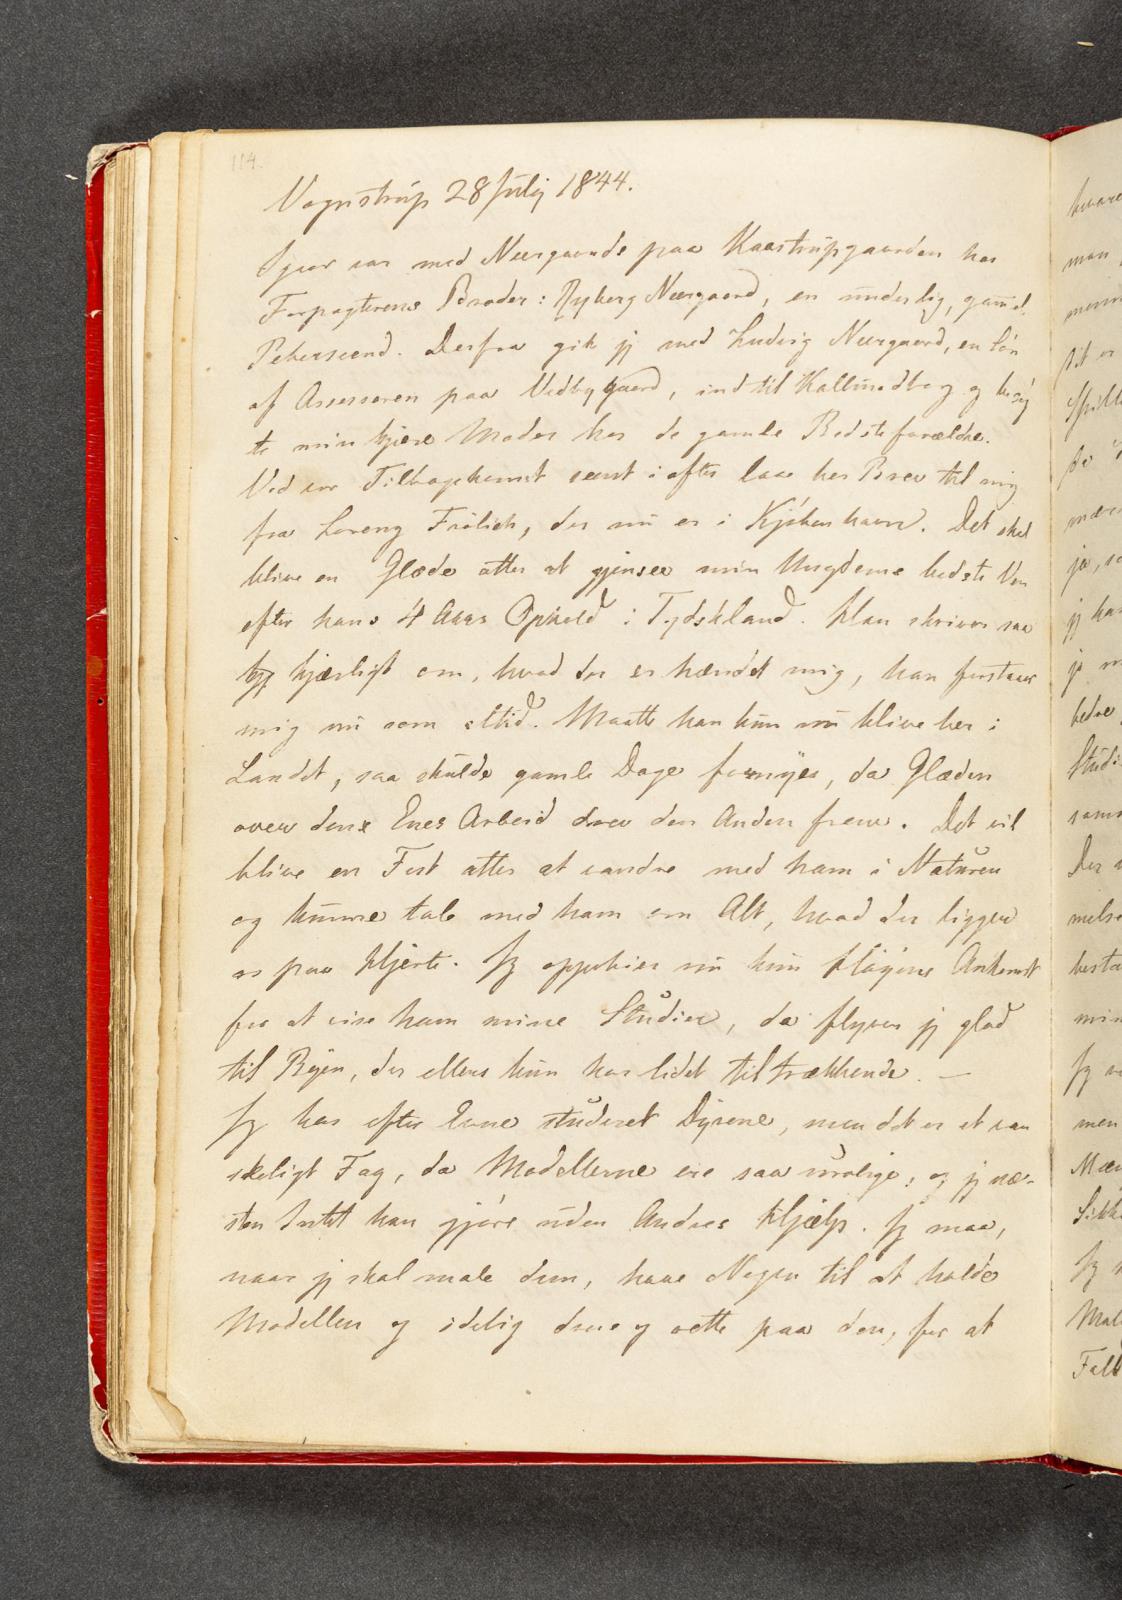 114.
Vognstrup 28 July 1844.
I gaar var med Neergaards paa Kaastrupgaarden hos
Forpagterens Broder: Ryberg Neergaard, en underlig, gammel
Pebersvend. Derfra gik jeg med Ludvig Neergaard, en Søn
af Assessoren paa Vedbygaard, ind til Kallundborg og besøg
te min kjere Moder hos de gamle Bedsteforældre.
Ved vor Tilbagekomst seent i aftes laae her Brev til mig
fra Loreng Frølich, der nu er i Kjøbenhavn. Det skal
blive en Glæde atter at gjensee min Ungdoms bedste Ven
efter hans 4 Aars Ophold i Tydskland. Han skriver saa
kjærligt om, hvad der er hændet mig, han forstaaer
mig nu som altid. Maatte han kun nu blive her i
Landet, saa skulde gamle Dage fornyes, da Glæden
over den Enes Arbeid drev den Anden frem. Det vil
blive en Fest atter at vandre med ham i Naturen
og kunne tale med ham om Alt, hvad der ligger
os paa Hjerte. Jeg oppebier nu kun Høyens Ankomst
for at vise ham mine Studier, da flyver jeg glad
til Byen, der ellers kun har lidet tiltrækkende. —
Jeg har efter Evne studeret Dyrene, men det er et van
skeligt Fag, da Modellerne ere saa urolige, og jeg næ-
sten Intet kan gjøre uden Andres Hjælp. Jeg maa,
naar jeg skal male dem, have Nogen til at holde
Modellen og idelig dreie og rette paa den, for at